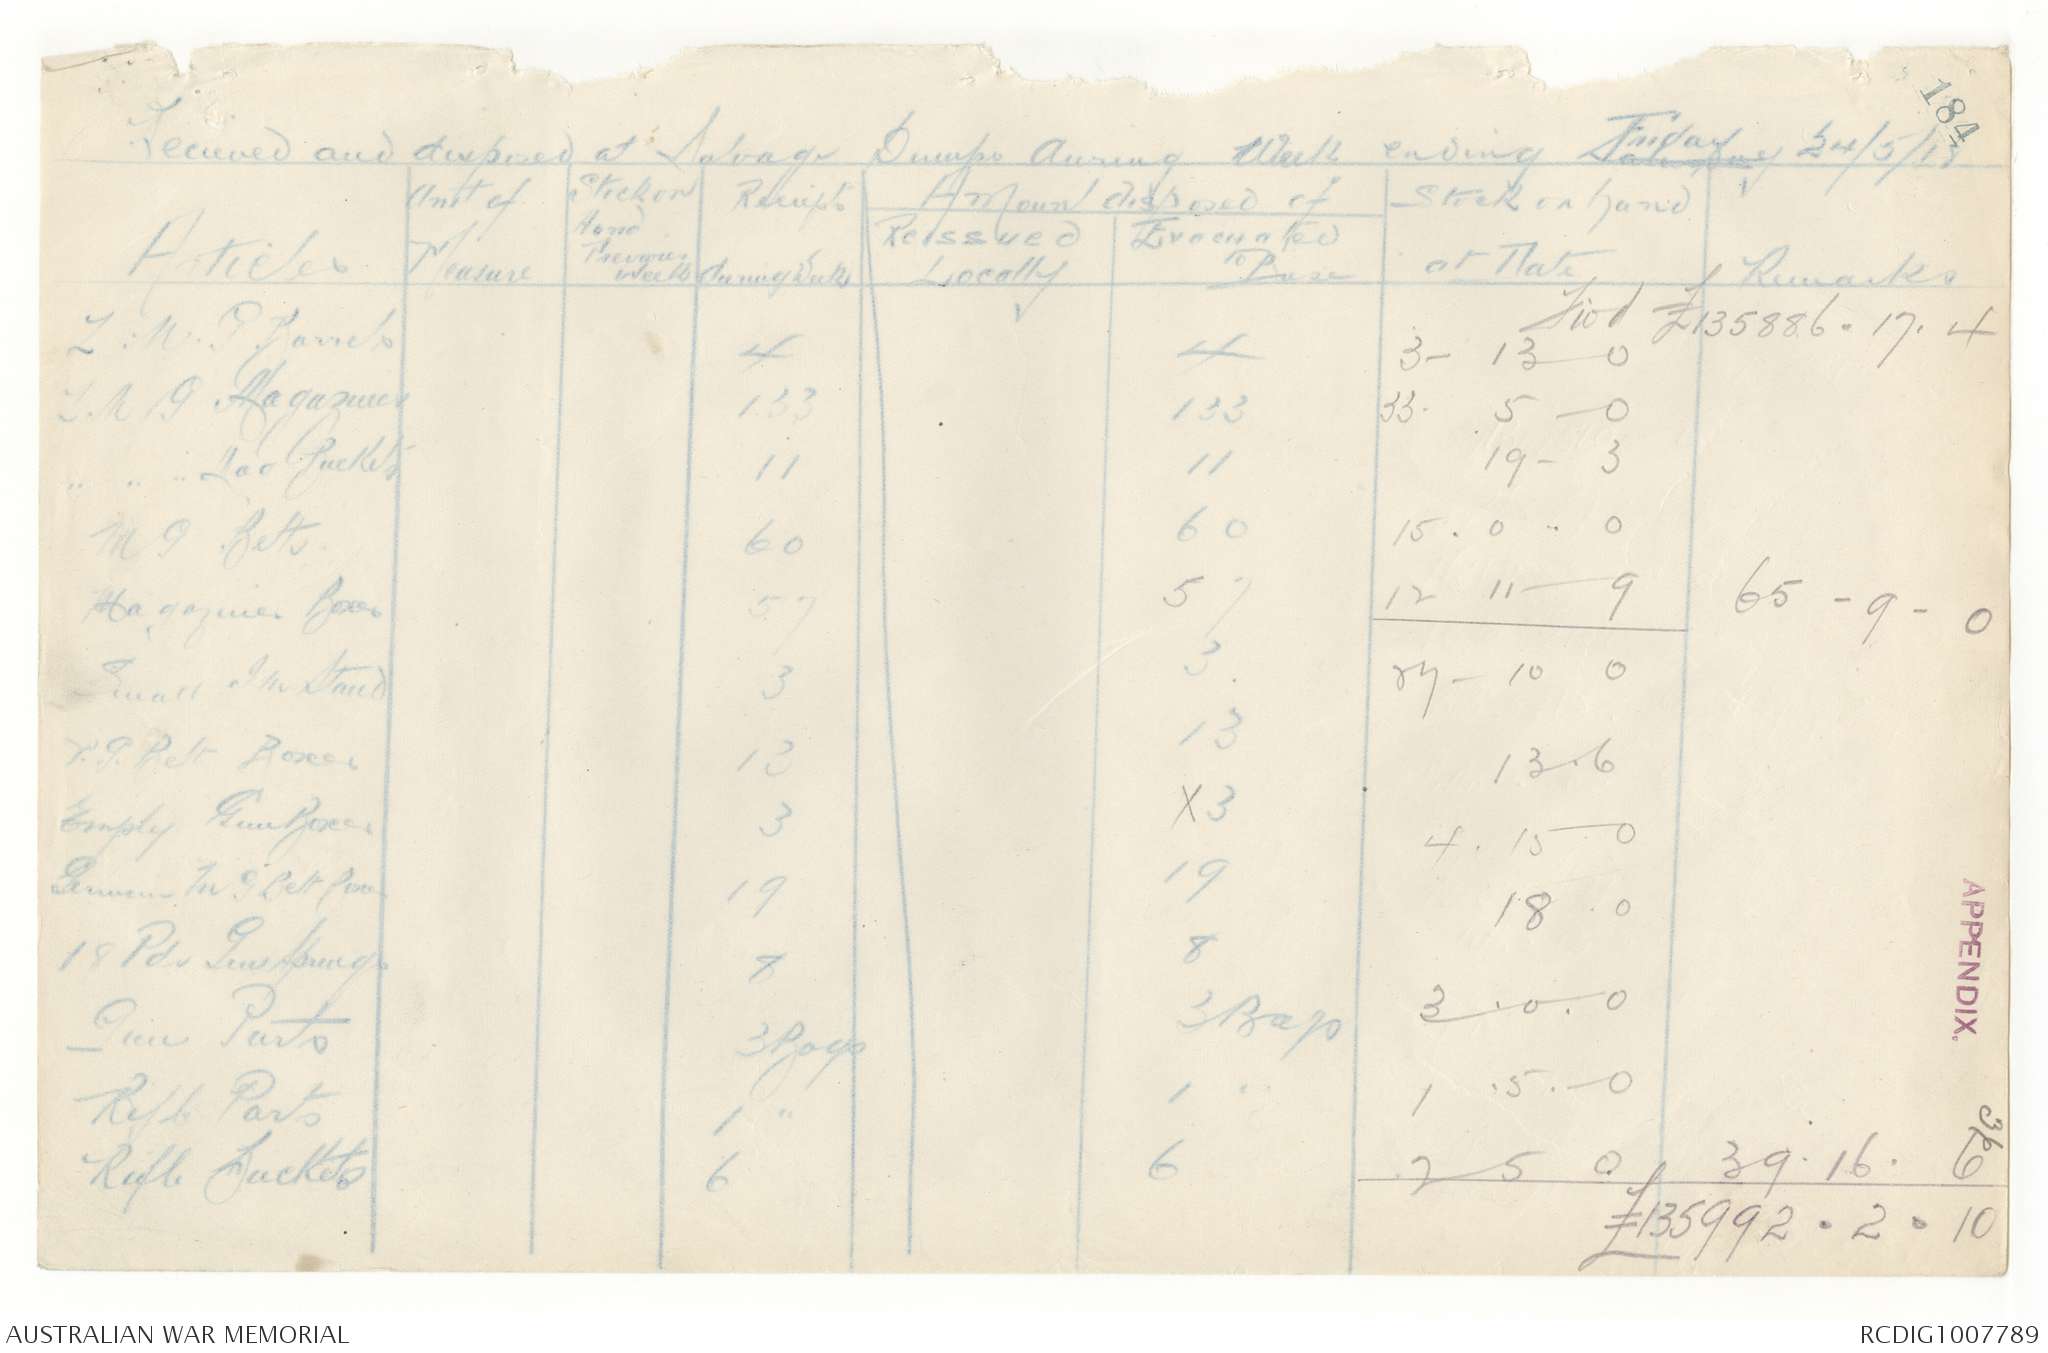 184
Recieved and disposed at Salvage Dumps during Week ending Friday 24/5/18
Articles
Unit of Measure
Stock on Hand Previous week
Receipts during Week
Amount disposed of
Reissued Locally
Evacuated to Base
Stock on hand at Date
Remarks
Fwd £135886 . 17 . 4
L. M. G Barrels 4 4 3 - 13 - 0
L. M G Magazines 133 133 33. 5 - 0
" " " 11 11 19 - 3
M G Belts 60 60 15 . 0 .. 0
Magazines Boxes 57 57 12 11 - 9 65 - 9 - 0
Small Stand 3 3. 27 - 10 0
V. G. Belt Boxes 13 13 13 . 6
Empty Gun Boxes 3 X3 4 . 15 - 0
German M G Belt Boxes 19 19 18 . 0
18 Pdr Gun Springs 8 8 3 . 0 . 0
Gun Parts 3 Bags 3 Bags
Rifle Parts 1 " 1 " 1 . 5 . - 0
Rifle Buckets 6 6 . 2 5 0 39 . 16 . 6
£135992 . 2 . 10
APPENDIX.
36
AUSTRALIAN WAR MEMORIAL
RCDIG1007789